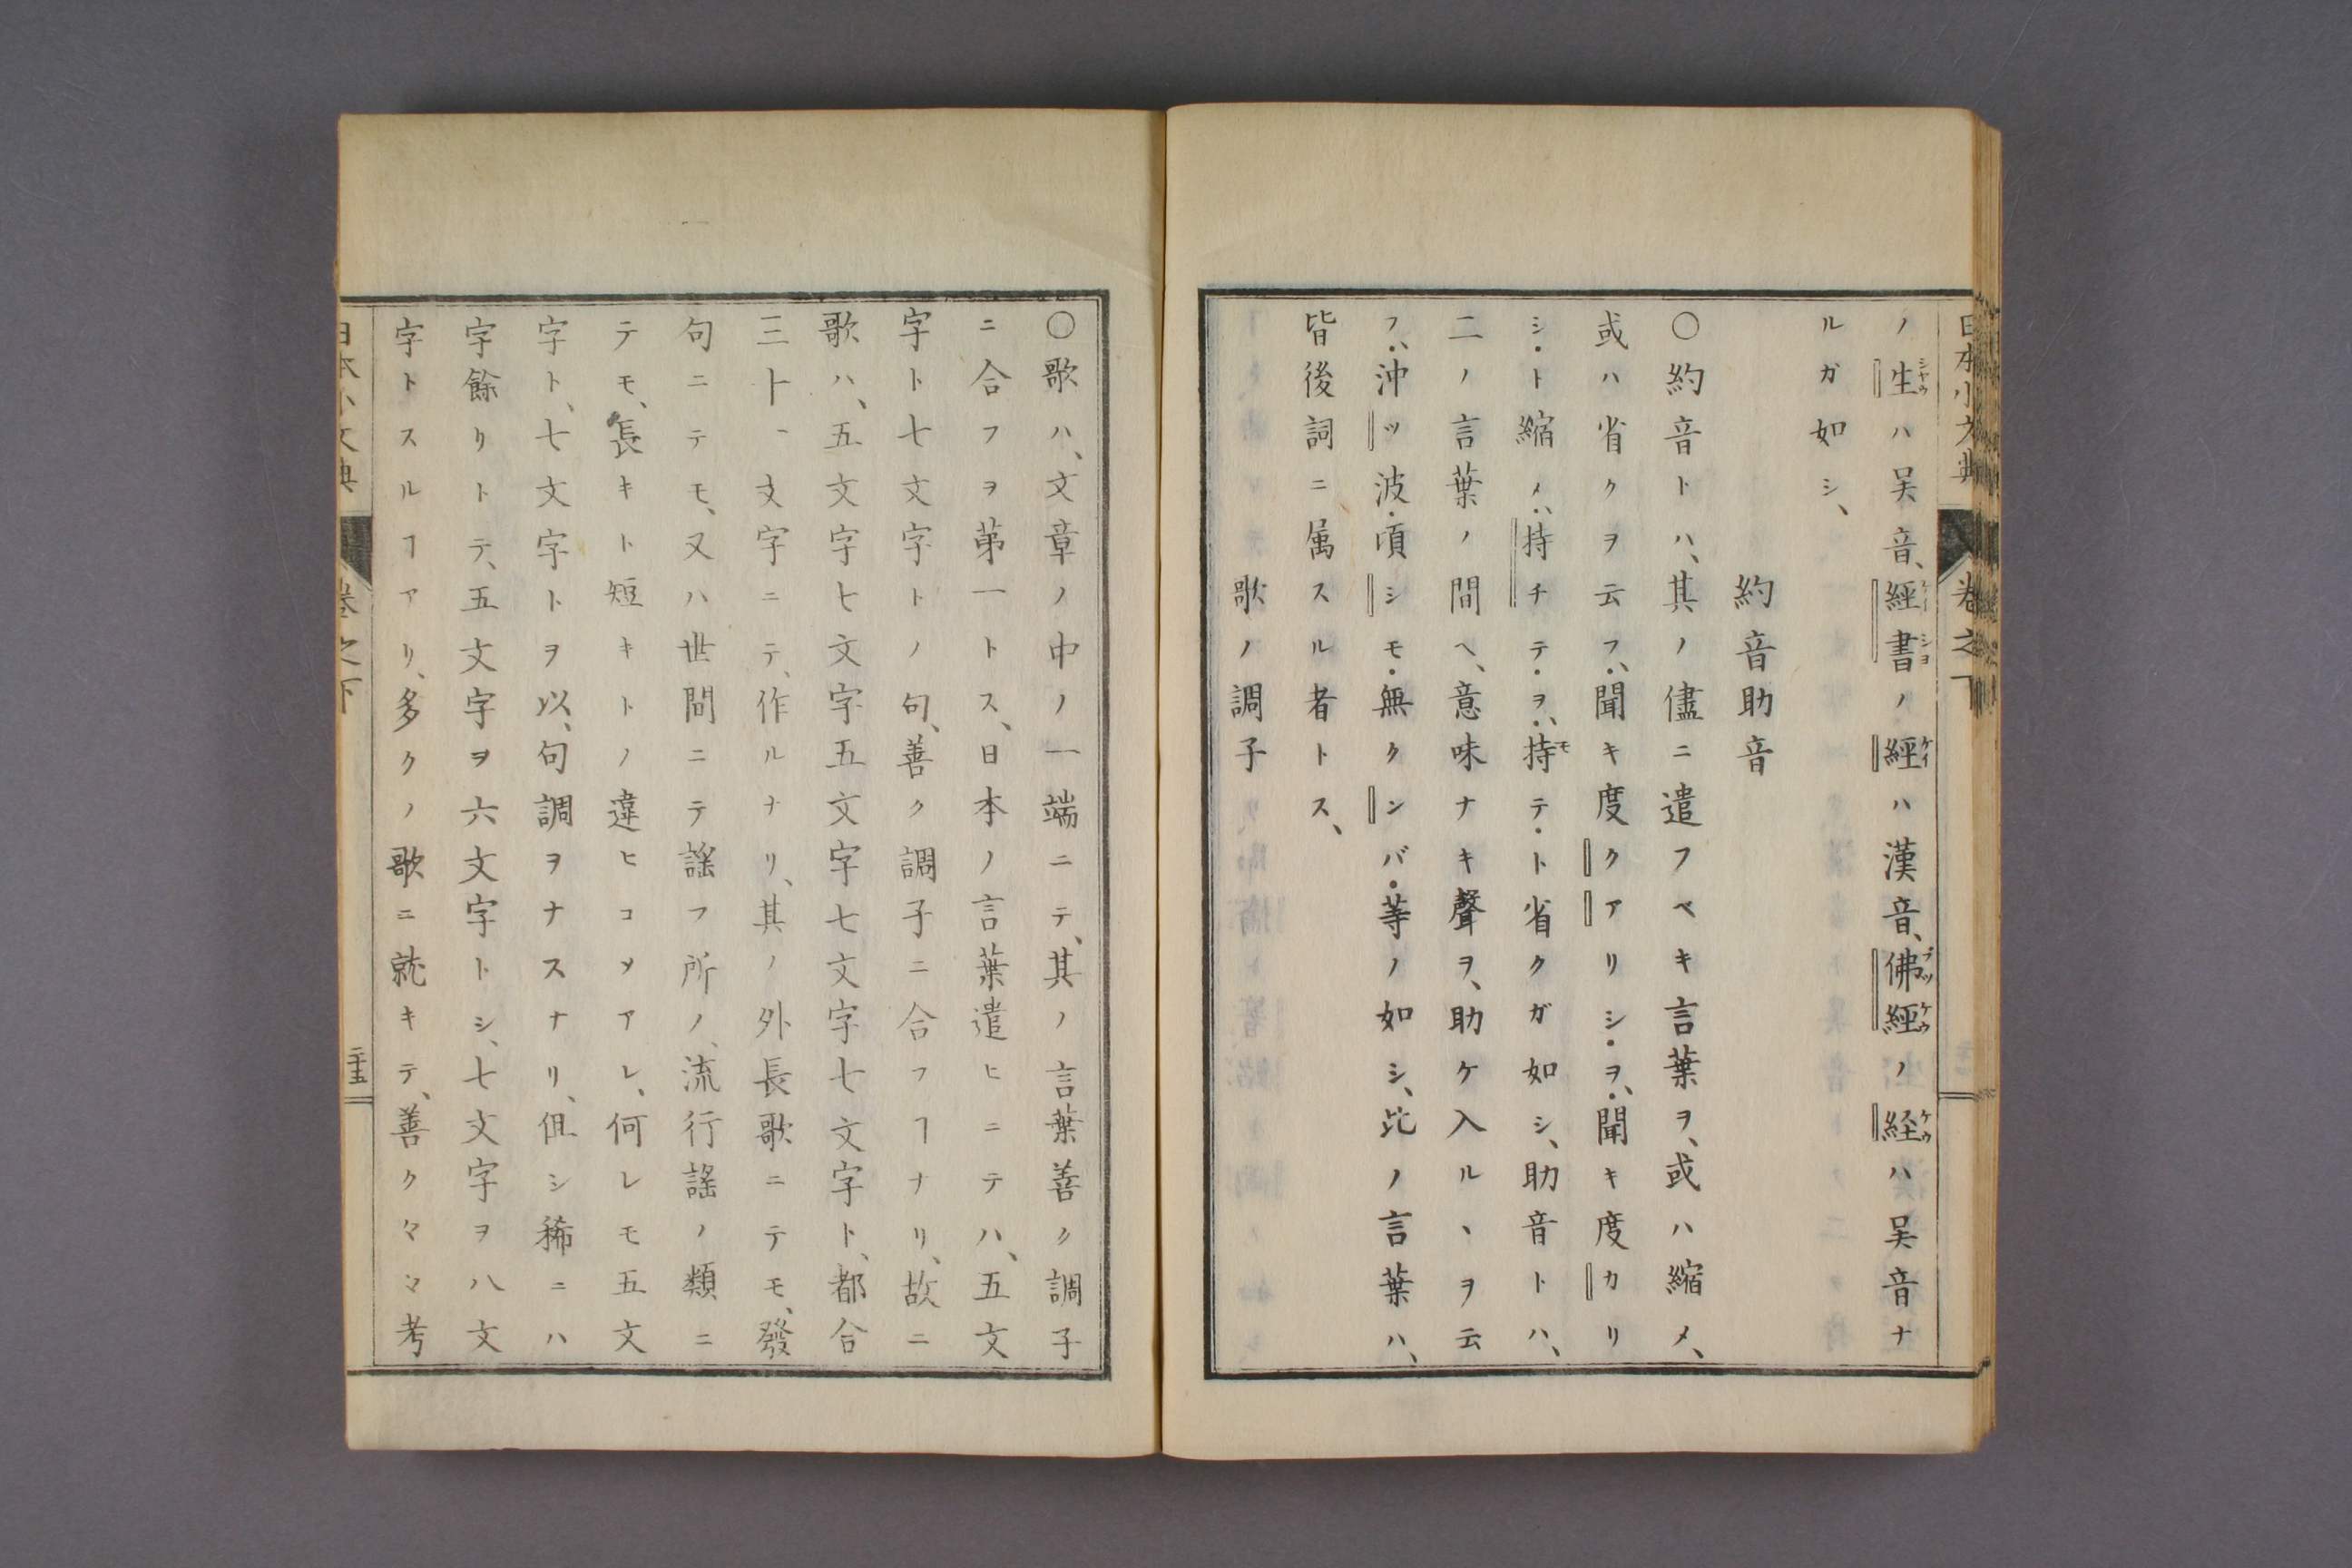 日本小文典 卷之下
ノ生ハ吴音、經書ノ經ハ漢音、佛經ノ経ハ吴音ナ
ルガ如シ、
約音助音
〇約音トハ、其ノ儘ニ遣フベキ言葉ヲ、或ハ縮メ、
或ハ省クヲ云フ、・聞キ度クアリシ・ヲ、・聞キ度カリ
シ・ト縮メ、・持チテ・ヲ、・持テ・ト省クガ如シ、助音トハ、
二ノ言葉ノ間ヘ、意味ナキ聲ヲ、助ケ入ルヽヲ云
フ、・沖ツ波・頃シモ・無クンバ・等ノ如シ、比ノ言葉ハ、
皆後詞ニ属スル者トス、
歌ノ調子
〇歌ハ、文章ノ中ノ一端ニテ、其ノ言葉善ク調子
ニ合フヲ第一トス、日本ノ言葉遣ヒニテハ、五文
字ト七文字トノ句、善ク調子ニ合フヿナリ、故ニ
歌ハ、五文字七文字五文字七文字七文字ト、都合
三十一文字ニテ、作ルナリ、其ノ外長歌ニテモ、發
句ニテモ、又ハ世間ニテ謠フ所ノ、流行謠ノ類ニ
テモ、長キト短キトノ違ヒコソアレ、何レモ五文
字ト、七文字トヲ以、句調ヲナスナリ、但シ稀ニハ
字餘リトテ、五文字ヲ六文字トシ、七文字ヲ八文
字トスルヿアリ、多クノ歌ニ就キテ、善クマヽ考
日本小文典 卷之下 二十五